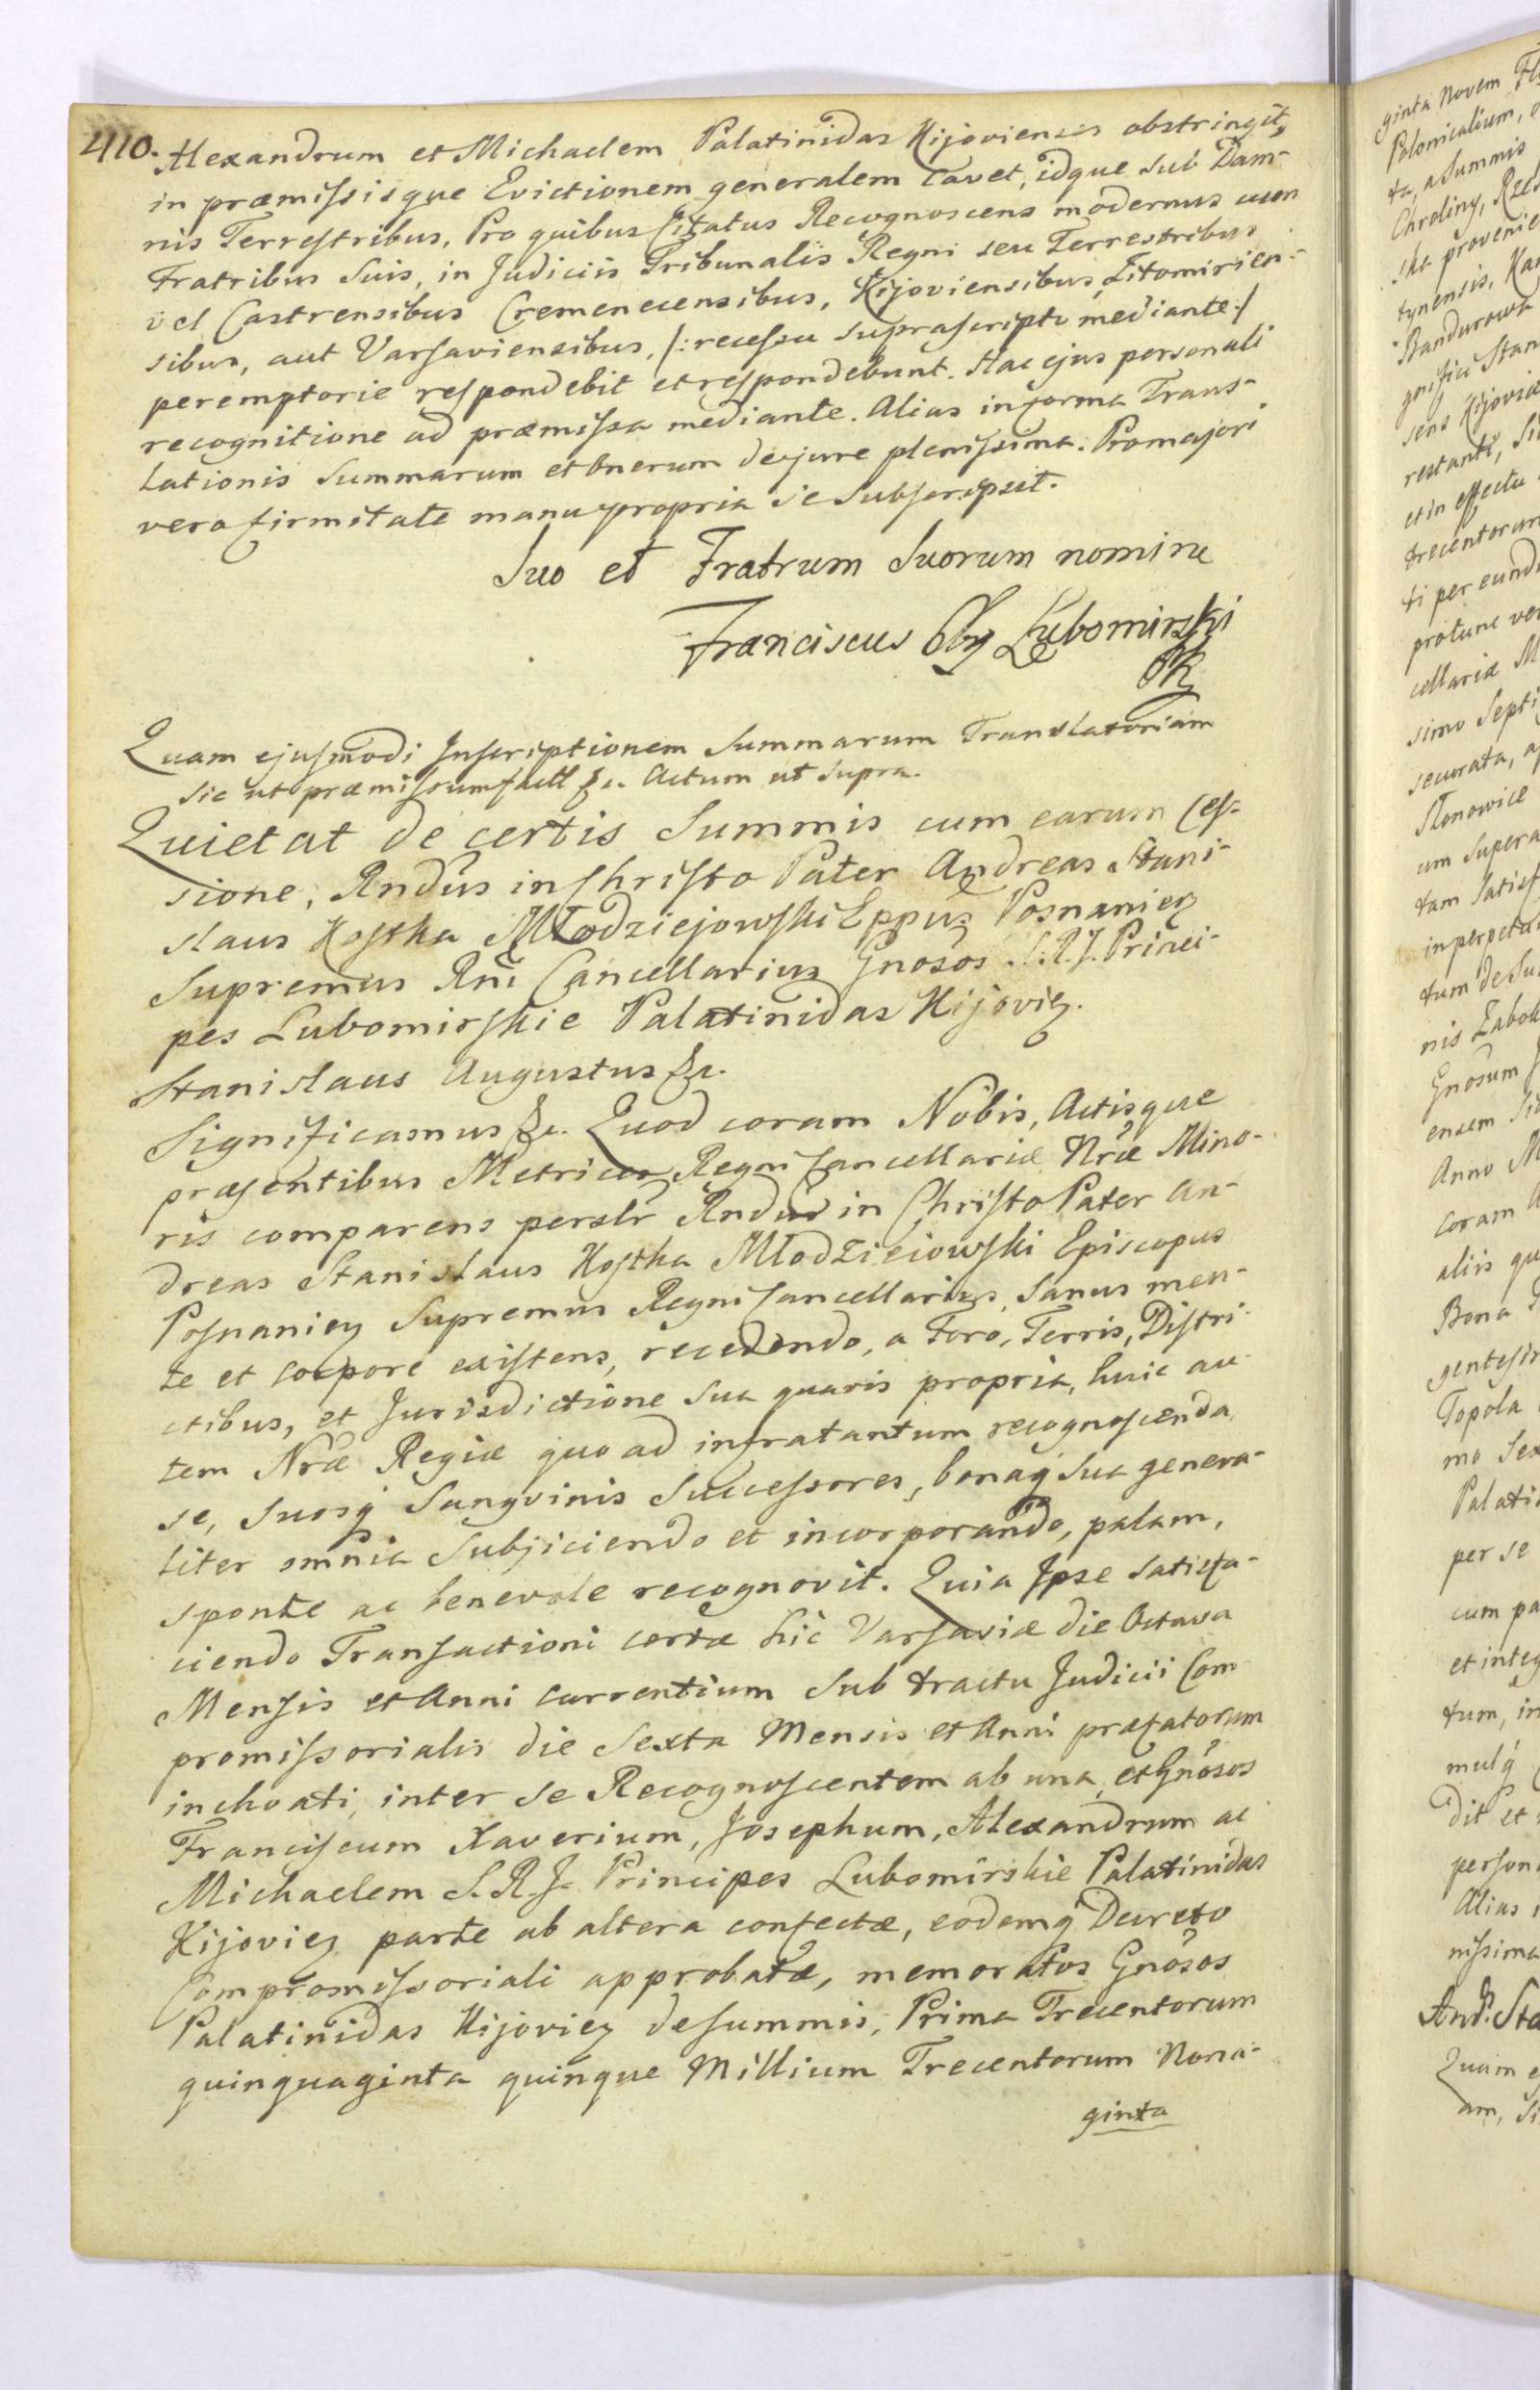 410. Alexandrum et Michaelem Palatinidas Kijovienses obstringit,
in præmissisque Evictionem generalem cavet, idque sub Dam-
nis Terrestribus, Pro quibus Citatus Recognoscens modernus cum
Fratribus Suis, in Judiciis Tribunalis Regni seu Terrestribus
vel Castrensibus Cremenecensibus, Kijoviensibus Zitomirien-
sibus, aut Varsaviensibus, /: recessu suprascripto mediante :/
peremptorie respondebit et respondebunt. Hac ejus personali
recognitione ad præmissa mediante. Alias in forma Trans-
lationis Summarum et Onerum de jure plenissima. Pro majori
vero firmitate manu propria se subscripsit.
Suo et Fratrum Suorum nomine
Franciscus Lubomirski
Quam ejusmodi Inscriptionem Summarum Translatoriam
sic ut præmissum factt &c. Actum ut supra.
Quietat de certis Summis cum earum Ces-
sione, Rndus in Christo Pater Andreas Stani-
slaus Kostka Młodziejowski Eppus Posnaniez
Supremus Rni Cancellarius Gnosos S.R.J. Princi-
pes Lubomirskie Palatinidas Kijoviez.
Stanislaus Augustus &c.
Significamus &c. Quod coram Nobis, Actisque
præsentibus Metrices Regni Cancellariæ Nræ Mino-
ris comparens persltr Rndus in Christo Pater An-
dreas Stanislaus Kostka Młodzieiowski Episcopus
Posnaniez Supremus Regni Cancellarius, Sanus men-
te et corpore existens, recedendo, a Foro, Terris, Distri-
ctibus, et Jurisdictione sua quavis propria, huic au-
tem Nræ Regiæ quo ad infra tantum recognoscenda
se, suosq Sangvinis Successores, bonaq sua genera-
liter omnia Subjiciendo et incorporando, palam,
sponte ac benevole recognovit. Quia Ipse satisfa-
ciendo Transactioni certæ hic Varsaviæ die Octava
Mensis et Anni currentium sub tractu Judicii Com-
promissorialis die Sexta Mensis et Anni præfatorum
inchoati, inter se Recognoscentem ab una, et Gnosos
Franciscum Xaverium, Josephum, Alexandrum ac
Michaelem S.R.J. Principes Lubomirskie Palatinidas
Kijoviez parte ab altera confectæ, eodemq Decreto
Compromissoriali approbatæ, memoratos Gnosos
Palatinidas Kijoviez de summis, Prima Trecentorum
quinquaginta quinque Millium Trecentorum Nona-
ginta
ginta Novem
Polonicalium,
a Summis
provenie
tynensis,
Bandurowk
gnifici Stan
sens Kijoviæ
restanti,
et in effectu
trecentorum
ti per eund
protunc
cellariæ M
simo Septi
securata,
um supera
tam satisf
in perpetu
tum de su
nis
Gnosum
ensem
Anno M
Coram A
aliis qu
Bona
gentesi
Topola
mo Sex
Palati
per se
cum pa
et integ
tum, in
mulq
dit et
person
Alias
nissima
And. Sta
Quam e
am, Si